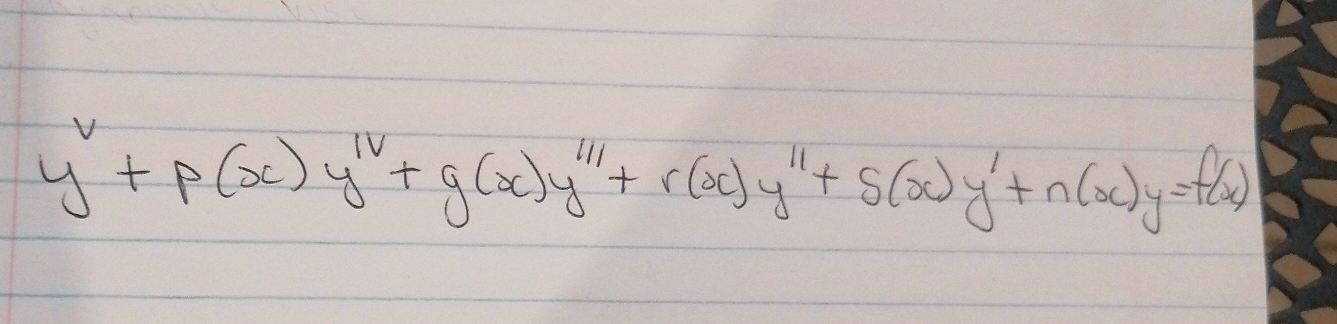 y^V + p(x) y^IV + g(x)y''' + r(x) y'' + s(x) y' + n(x)y = f(x)